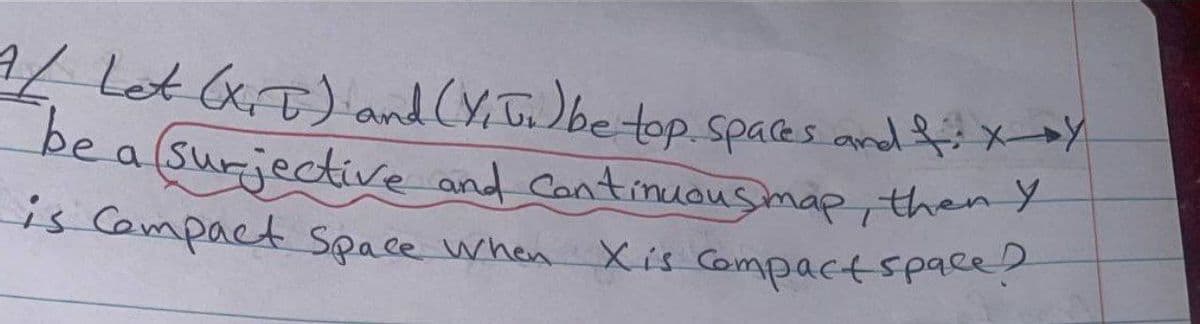 1/ Let (X, T) and (Y, T₁) be top. spaces and f: X→Y
be a surjective and Continuous map, then Y
is Compact Space when X is Compact space?